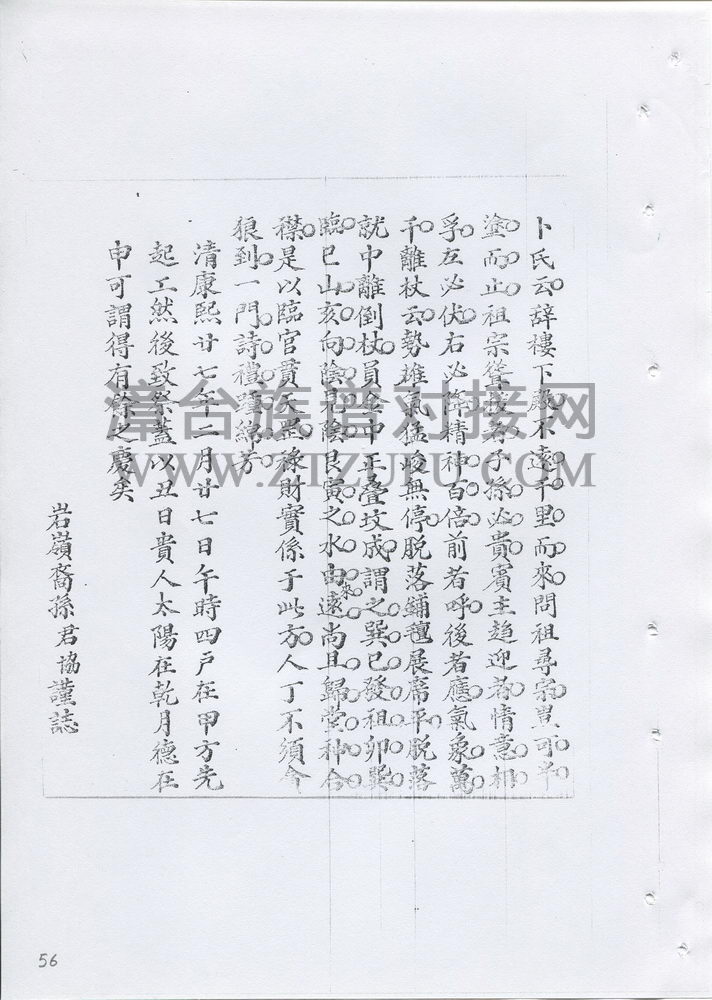 卜氏云辞樓下殿不遠千里而來問祖尋宗豈可半
塗而止祖宗聳拔者子孫必貴賓主趨迎者情意相
孚左必伏右必降精神百倍前者呼後者應氣象萬
千離杖云勢雄氣猛峻無停脱落鋪氊展席平脱落
就中離倒杖員金中正叠坟成謂之巽巳發祖卯巽
臨巳山亥向陰見陰艮寅之水由遠來尚且歸堂神合
襟是以臨官貫天是祿財實係于此方人丁不須令
狼到一門詩禮綿芳
清康熙廿七年二月廿七日午時四戸在甲方先
起工然後致祭蓋以丑日貴人太陽在乾月德在
申可謂得有餘之慶矣
岩嶺裔孫君協謹誌
漳台族谱对接网
WWW.ZTZUPU.COM
56